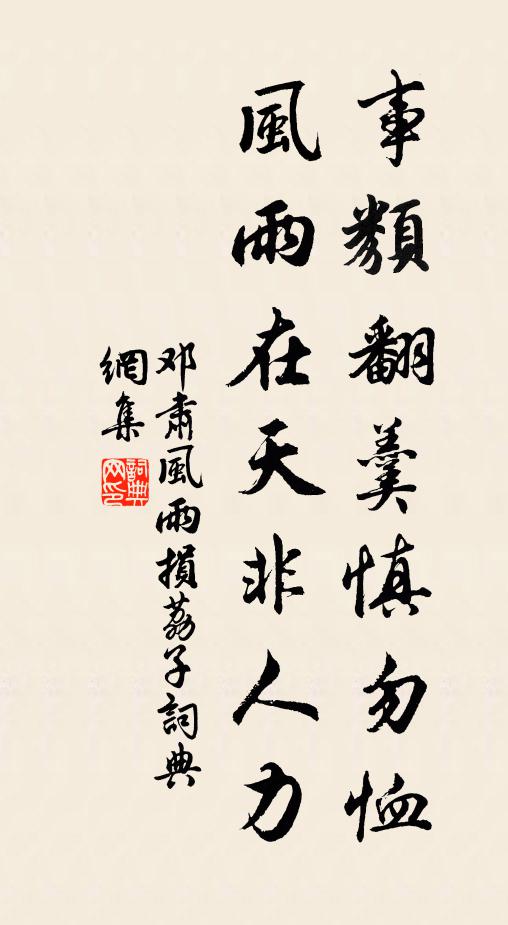 事類翻羹慎勿恤
風雨在天非人力
邓肅風雨損荔子詞典
網集
詞典網印